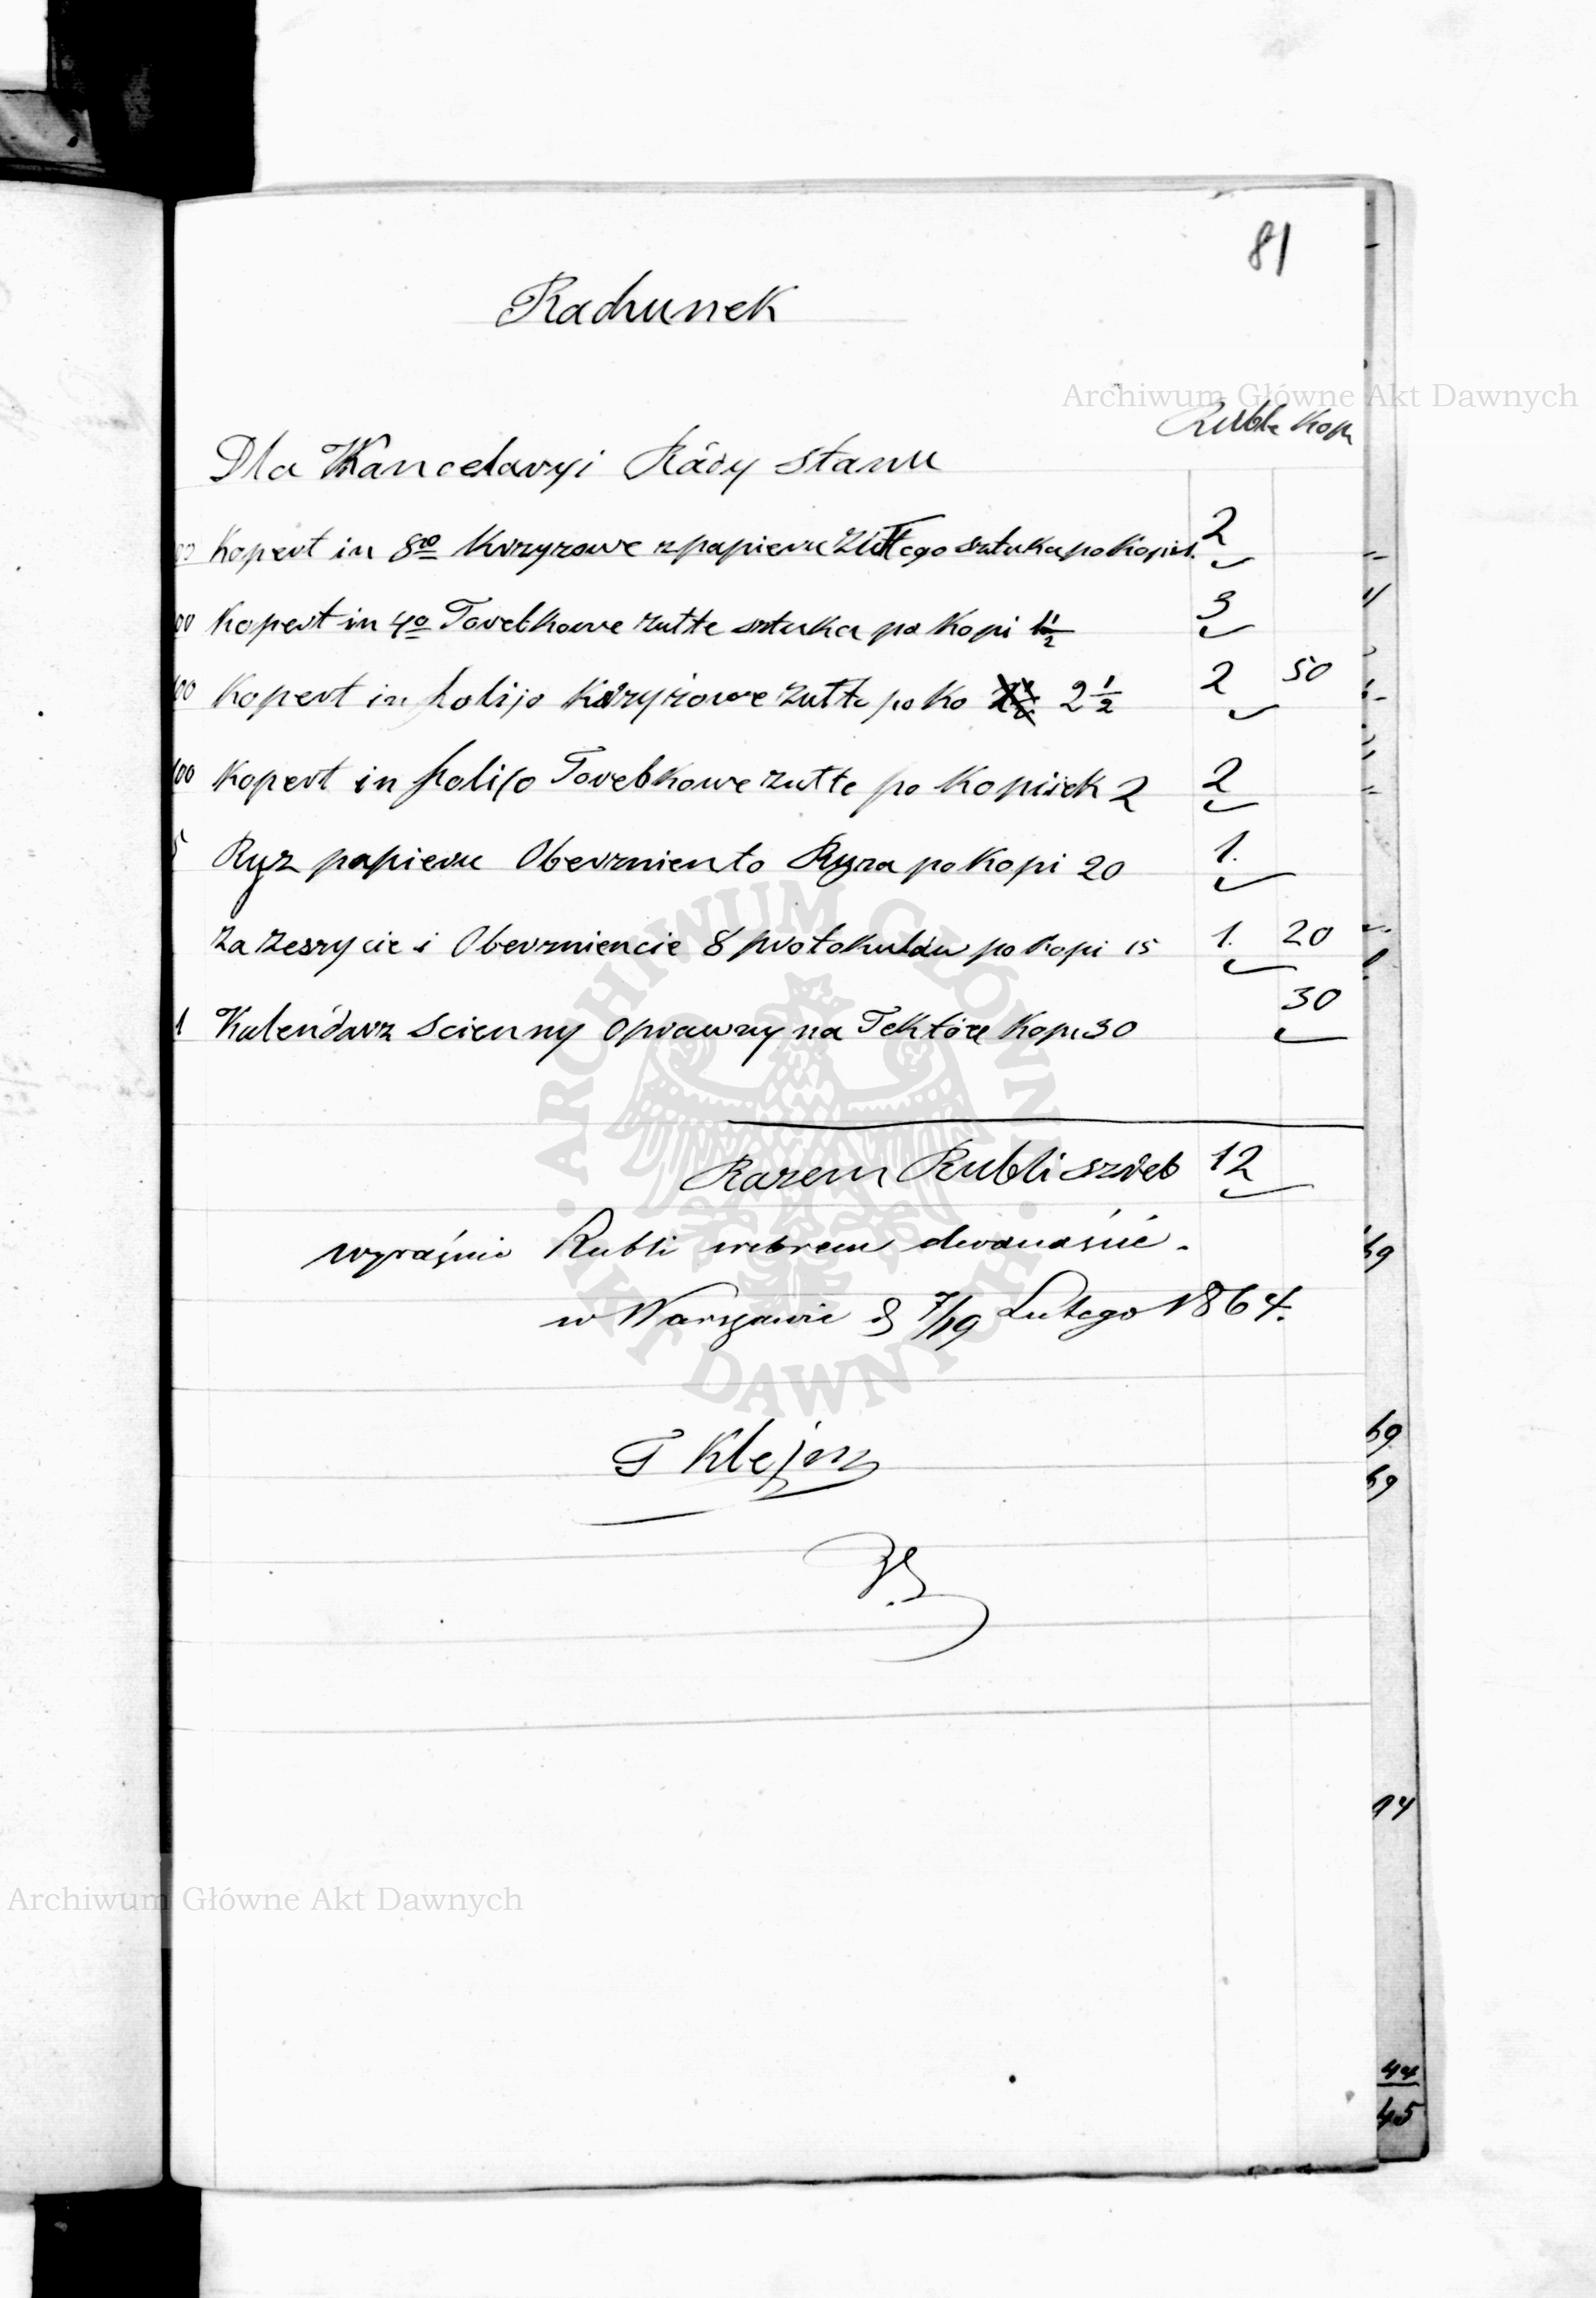 81
Rachunek
Archiwum Główne Akt Dawnych
Rubli Kop
Dla Kancelaryi Rády Stanu
00 Kopert in 8vo Krzyzowe z papieru Zułtego sztuka po Kopi 1. 2
00 Kopert in 4o Torebkowe zułte sztuka po Kopi 1½ 3
100 Kopert in folijo Krzyżowe zułte po Ko 2½ 2 50
100 Kopert in folijo Torebkowe zułte po Kopiiek 2 2
5 Ryz papieru Oberzniento Ryza po Kopi 20 1.
Za Zeszycie i Oberzniencie 8 protokułów po Kopi 15 1. 20
1 Kalendarz Scienny Oprawny na Tektóre Kopi 30 30
Razem Rubli szreb 12
wyraźnie Rubli srebrem dwanaście.
w Warszawie d 7/19 Lutego 1864.
T Klejn
ARCHIWUM GŁÓWNE
AKT DAWNYCH
Archiwum Główne Akt Dawnych
69
69
69
14
44
45